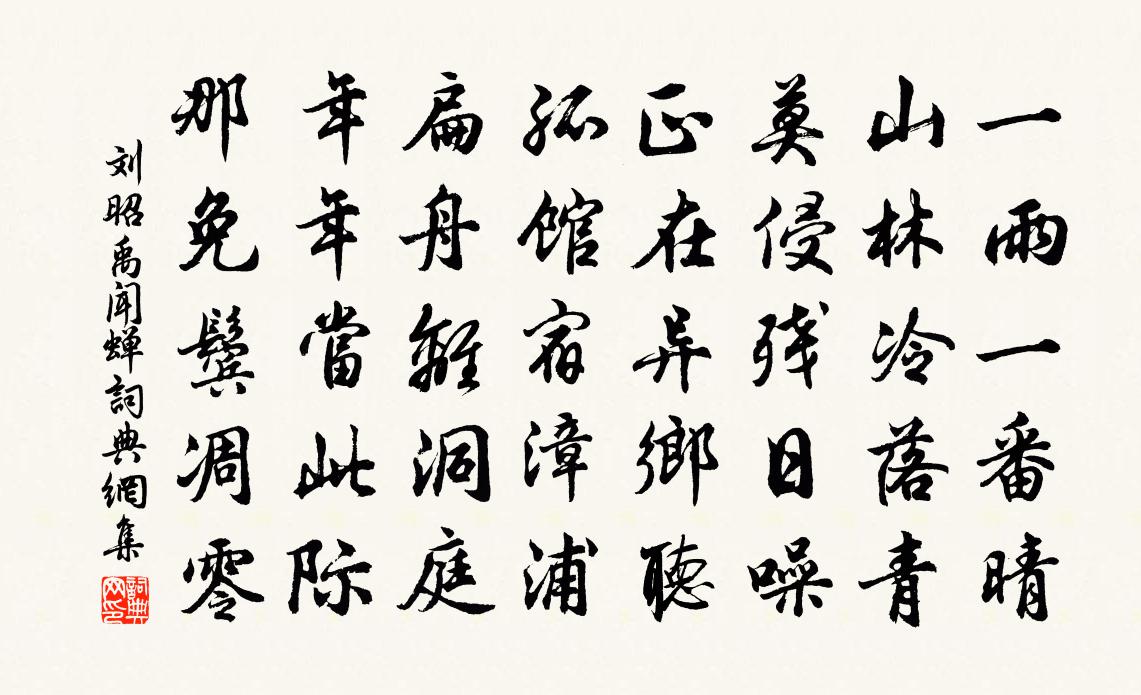 一雨一番晴
山林冷落青
莫侵残日噪
正在异鄉聽
孤館宿漳浦
扁舟離洞庭
年年當此际
那免鬓凋零
刘昭禹闻蝉詞典網集
詞典网印